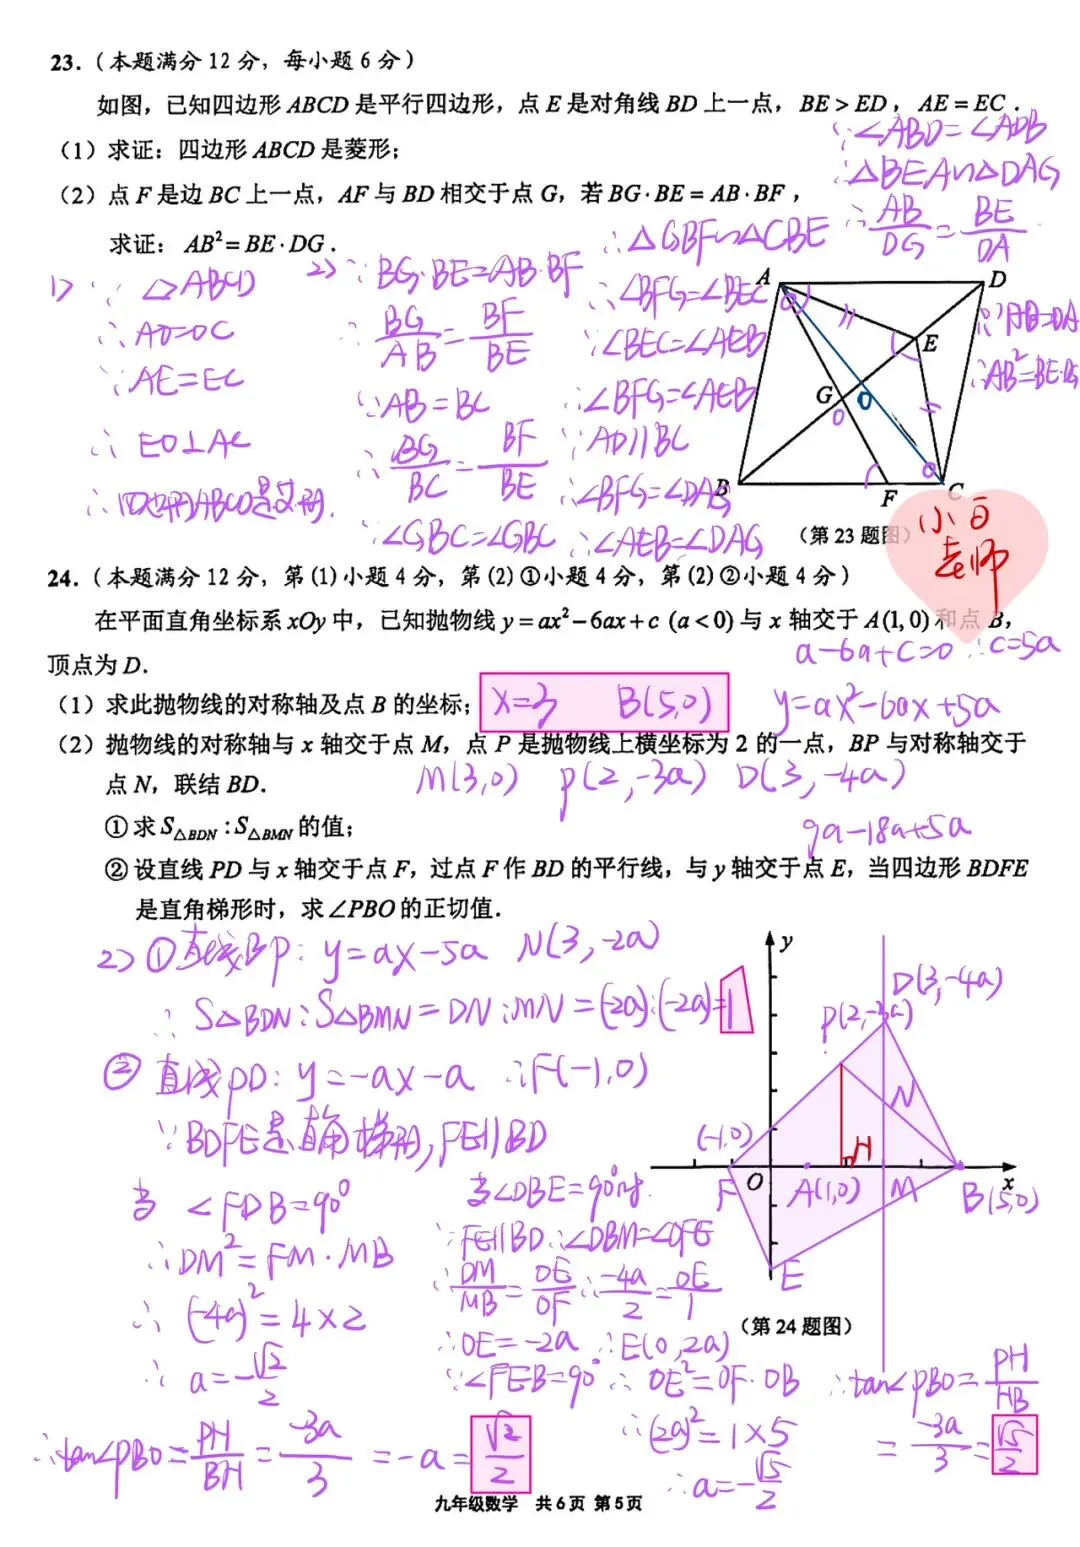 23.（本题满分 12 分，每小题 6 分）
如图，已知四边形 ABCD 是平行四边形，点 E 是对角线 BD 上一点，BE > ED，AE = EC．
（1）求证：四边形 ABCD 是菱形；
（2）点 F 是边 BC 上一点，AF 与 BD 相交于点 G，若 BG · BE = AB · BF，
求证：AB² = BE · DG．
∵∠ABD=∠ADB
∴△BEA∽△DAG
∴AB/DG=BE/DA
∵AB=DA
∴AB²=BE·DG
1) ∵ ▱ABCD
∴AO=OC
∵AE=EC
∴EO⊥AC
∴四边形ABCD是菱形.
2) ∵BG·BE=AB·BF
∴BG/AB=BF/BE
∵AB=BC
∴BG/BC=BF/BE
∵∠GBC=∠GBC
∴△GBF∽△CBE
∴∠BFG=∠BEC
∵∠BEC=∠AEB
∴∠BFG=∠AEB
∵AD∥BC
∴∠BFG=∠DAG
∴∠AEB=∠DAG
A D E G O B F C
（第 23 题图）
小白
老师
24.（本题满分 12 分，第 (1) 小题 4 分，第 (2) ①小题 4 分，第 (2) ②小题 4 分）
在平面直角坐标系 xOy 中，已知抛物线 y = ax² − 6ax + c (a < 0) 与 x 轴交于 A(1, 0) 和点 B，
顶点为 D．
a-6a+c=0 ∴c=5a
（1）求此抛物线的对称轴及点 B 的坐标；
x=3 B(5,0)
y=ax²-6ax+5a
（2）抛物线的对称轴与 x 轴交于点 M，点 P 是抛物线上横坐标为 2 的一点，BP 与对称轴交于
点 N，联结 BD．
M(3,0) P(2,-3a) D(3,-4a)
①求 S△BDN : S△BMN 的值；
9a-18a+5a
②设直线 PD 与 x 轴交于点 F，过点 F 作 BD 的平行线，与 y 轴交于点 E，当四边形 BDFE
是直角梯形时，求∠PBO 的正切值．
2) ①直线BP: y=ax-5a N(3,-2a)
∴S△BDN:S△BMN=DN:MN=(-2a):(-2a)=1
②直线PD: y=-ax-a ∴F(-1,0)
∵BDFE是直角梯形,FE∥BD
当∠FDB=90°
∴DM²=FM·MB
∴(-4a)²=4×2
∴a=-√2/2
∴tan∠PBO=PH/BH=-3a/3=-a=√2/2
当∠DBE=90°时.
∵FE∥BD ∴∠DBM=∠OFE
∴DM/MB=OE/OF ∴-4a/2=OE/1
∴OE=-2a ∴E(0,2a)
∵∠FEB=90° ∴OE²=OF·OB
∴(2a)²=1×5
∴a=-√5/2
∴tan∠PBO=PH/HB
=-3a/3=√5/2
y
D(3,-4a)
P(2,-3a)
N
(-1,0) H
F O A(1,0) M B(5,0) x
E
（第 24 题图）
九年级数学 共 6 页 第 5 页